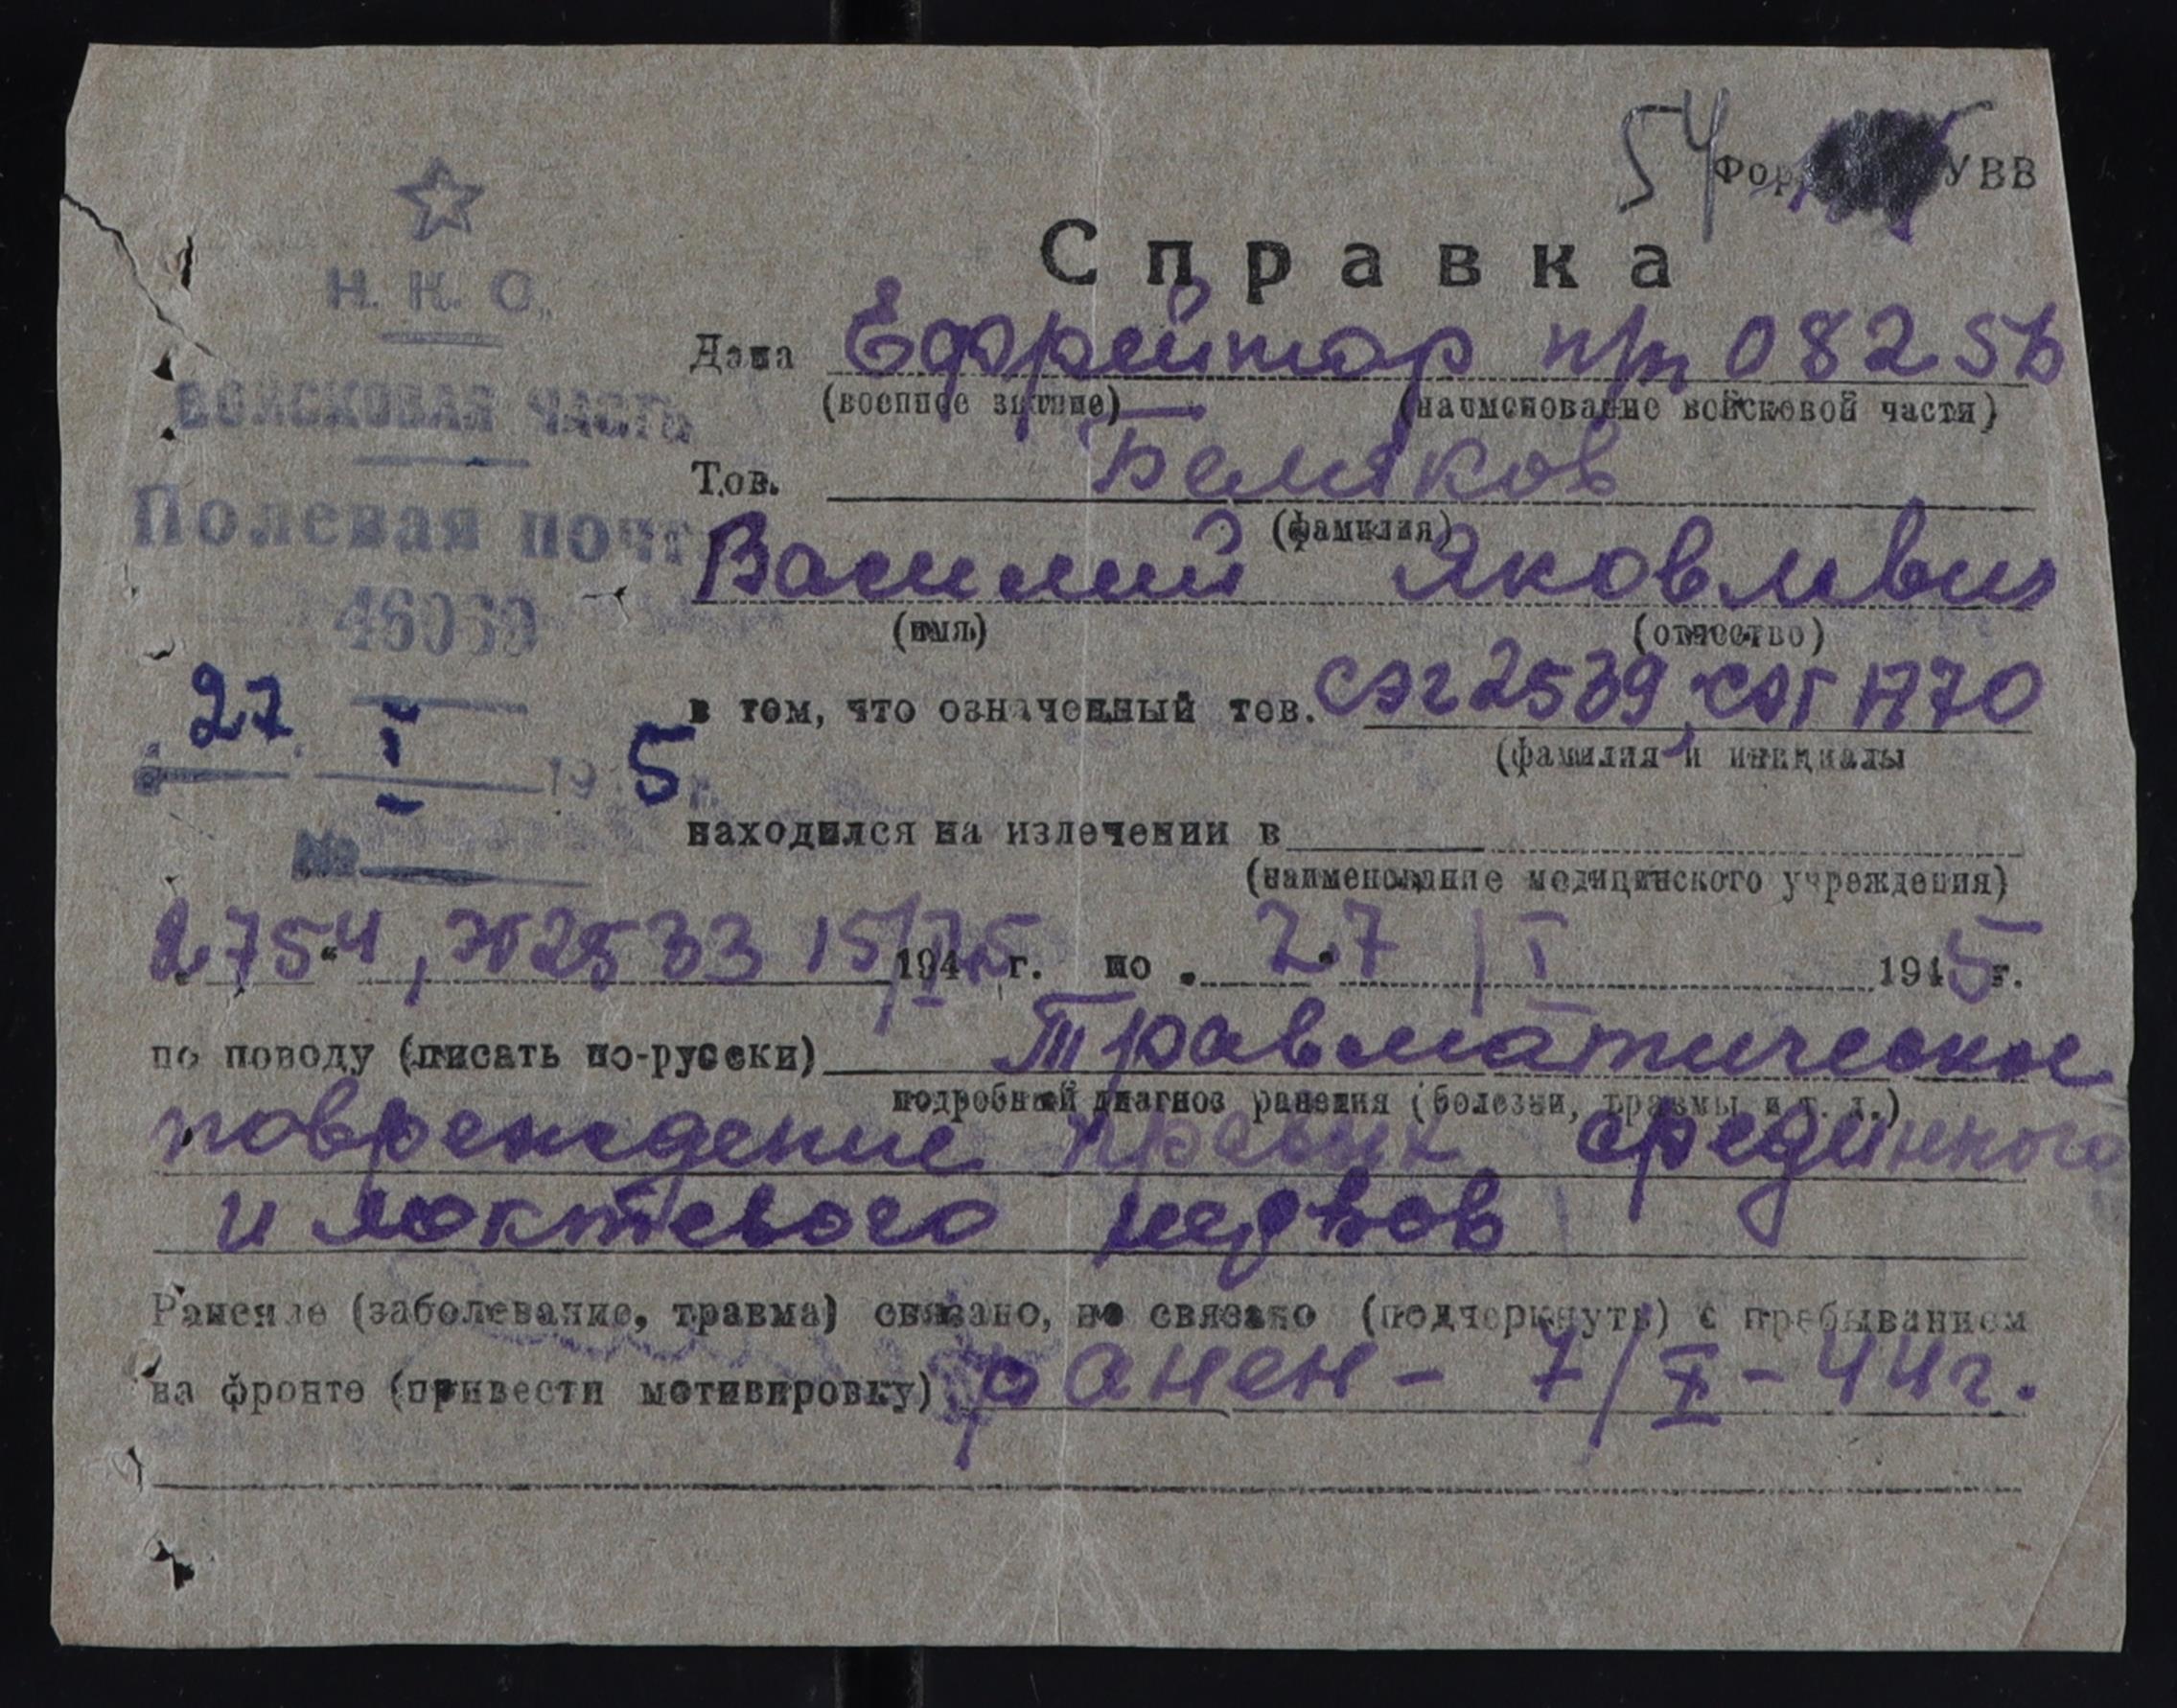 54 Фор УВВ
☆
Н. К. О.
Справка
Дана Ефрейтор п/п 08256
(военное звание) (наименование войсковой части)
ВОЙСКОВАЯ ЧАСТЬ
Тов. Беляков
(фамилия)
Полевая почта
Василий Яковлевич
(имя) (отчество)
46069
в том, что означенный тов. СЭГ 2539, СЭГ 1770
(фамилия и инициалы
27 I 195 г.
№
находился на излечении в
(наименование медицинского учреждения)
2754, ЭГ 2533 15/I 45 194 г. по "27" I 1945 г.
по поводу (писать по-русски) Травматическое
подробный диагноз ранения (болезни, травмы и т. д.)
повреждение правых срединного
и локтевого нервов
Ранение (заболевание, травма) связано, не связано (подчеркнуть) с пребыванием
на фронте (привести мотивировку) ранен - 7/X - 44 г.